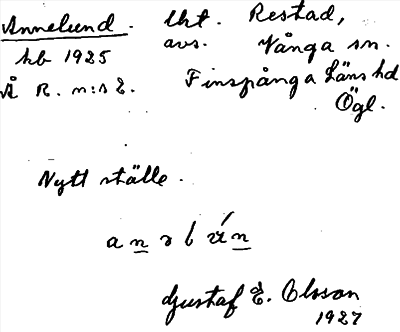 Annelund. lht. Restad,
kb 1925 avs. Vånga sn.
Å R. n:o 2. Finspånga Läns hd
Ögl.
Nytt ställe.
Gustaf E. Olsson
1927